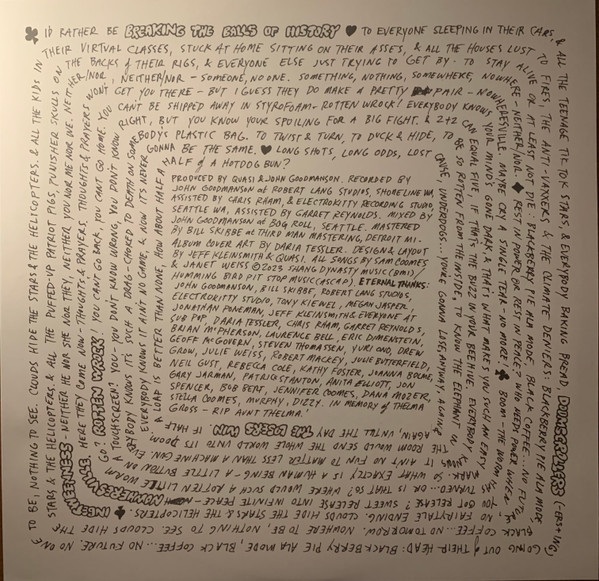 I'D RATHER BE BREAKING THE BALLS OF HISTORY ♥ TO EVERYONE SLEEPING IN THEIR CARS,
& ALL THE TEENAGE TIK TOK STARS, & EVERYBODY BAKING BREAD, DOOMSCROLLERS (-ERS+ING)
GOING OUT OF THEIR HEAD: BLACKBERRY PIE ALA MODE, BLACK COFFEE... NO FUTURE. NO ONE
TO BE, NOTHING TO SEE. CLOUDS HIDE THE STARS & THE HELICOPTERS, & ALL THE KIDS IN
THEIR VIRTUAL CLASSES, STUCK AT HOME SITTING ON THEIR ASSES, & ALL THE HOUSES LUST
TO FIRES, THE ANTI-VAXXERS & THE CLIMATE DENIERS. BLACKBERRY PIE ALA MODE
BLACK COFFEE... NO TOMORROW. NOWHERE TO BE, NOTHING TO SEE. CLOUDS HIDE THE
STARS & THE HELICOPTERS, & ALL THE PUFFED-UP PATRIOT PIGS, PUNISHER SKULLS ON
THE BACKS OF THEIR RIGS, & EVERYONE ELSE JUST TRYING TO GET BY. TO STAY ALIVE
OR AT LEAST NOT DIE. BLACKBERRY PIE ALA MODE, BLACK COFFEE... NO FUTURE,
NO FAIRYTALE ENDING. CLOUDS HIDE THE STARS & THE HELICOPTERS. ♣
INBETWEENNESS - NEITHER HE NOR SHE NOR THEY, NEITHER YOU NOR ME NOR WE. NEITHER/NOR,
NEITHER/NOR - SOMEONE, NO ONE. SOMETHING, NOTHING, SOMEWHERE, NOWHERE - NEITHER/NOR.
♦ REST IN POWER OR REST IN PEACE? WHO NEEDS POWER WHEN
YOU GET RELEASE? SWEET RELEASE INTO INFINITE PEACE - NOWHERESVILLE,
HERE THEY COME NOW - THOUGHTS & PRAYERS, THOUGHTS & PRAYERS WON'T
GET YOU THERE - BUT I GUESS THEY DO MAKE A PRETTY PAIR - NOWHERESVILLE.
MAYBE CRY A SINGLE TEAR - NO MORE! ♣ BOOM - THE WORM
TURNED - OR IS THAT SO? WHERE WOULD SUCH A ROTTEN LITTLE WORM
GO? ROTTEN WROCK! YOU CAN'T GO BACK, YOU CAN'T GO HOME.
YOU CAN'T BE SHIPPED AWAY IN STYROFOAM - ROTTEN WROCK! EVERYBODY KNOWS
YOUR MIND'S GONE DARK & THAT'S WHAT MAKES YOU SUCH AN EASY
MARK. SO WHAT EXACTLY IS A HUMAN BEING - A LITTLE BUTTON ON
A TOUCHSCREEN? YOU - YOU DON'T KNOW WRONG, YOU DON'T KNOW
RIGHT, BUT YOU KNOW YOUR SPOILING FOR A BIG FIGHT. & 2+2
CAN EQUAL FIVE, IF THAT'S THE BUZZ IN YOUR BEEHIVE. EVERYBODY
KNOWS IT AIN'T NO FUN TO MATTER LESS THAN A MACHINE GUN.
EVERYBODY KNOWS IT'S SUCH A DRAG - CHOKED TO DEATH ON SOME
BODY'S PLASTIC BAG. TO TWIST & TURN, TO DUCK & HIDE,
TO BE SO ROTTEN FROM THE INSIDE, TO KNOW THE ELEPHANT IN
THE ROOM WOULD SEND THE WHOLE WORLD INTO ITS DOOM
EVERYBODY KNOWS IT AIN'T NO GAME, & NOW IT'S NEVER
GONNA BE THE SAME. ♥ LONG SHOTS, LONG ODDS, LOST
CAUSE, UNDERDOGS... YOU'RE GONNA LOSE, ANYWAY, AGAIN &
AGAIN, UNTIL THE DAY THE LOSERS WIN IF HALF
A LOAF IS BETTER THAN NONE, HOW ABOUT HALF A
HALF OF A HOTDOG BUN?
PRODUCED BY QUASI & JOHN GOODMANSON. RECORDED BY
JOHN GOODMANSON AT ROBERT LANG STUDIOS, SHORELINE WA,
ASSISTED BY CHRIS RAHM, & ELECTROKITTY RECORDING STUDIO,
SEATTLE WA, ASSISTED BY GARRET REYNOLDS. MIXED BY
JOHN GOODMANSON AT BOG ROLL, SEATTLE. MASTERED
BY BILL SKIBBE AT THIRD MAN MASTERING, DETROIT MI-
ALBUM COVER ART BY DARIA TESSLER. DESIGN & LAYOUT
BY JEFF KLEINSMITH & QUASI. ALL SONGS BY SAM COOMES
& JANET WEISS © 2023 SHANG DYNASTY MUSIC (BMI)/
HUMMING BIRD PIT STOP MUSIC (ASCAP) ETERNAL THANKS:
JOHN GOODMANSON, BILL SKIBBE, ROBERT LANG STUDIOS,
ELECTROKITTY STUDIO, TONY KIEWEL, MEGAN JASPER,
JONATHAN PONEMAN, JEFF KLEINSMITH & EVERYONE AT
SUB POP, DARIA TESSLER, CHRIS RAHM, GARRET REYNOLDS,
BRIAN MCPHERSON, LAURENCE BELL, ERIC DIMENSTEIN,
GEOFF MCGOVERN, STEVEN THOMASSEN, YURI ONO, DREW
GROW, JULIE WEISS, ROBERT MACKEY, JULIE BUTTERFIELD,
NEIL GUST, REBECCA COLE, KATHY FOSTER, JOANNA BOLME,
GARY JARMAN, PATRICK STANTON, ANITA ELLIOTT, JON
SPENCER, BOB BERT, JENNIFER COOMES, DANA MOZER,
STELLA COOMES, MURPHY, DIZZY. IN MEMORY OF THELMA
GROSS - RIP AUNT THELMA.